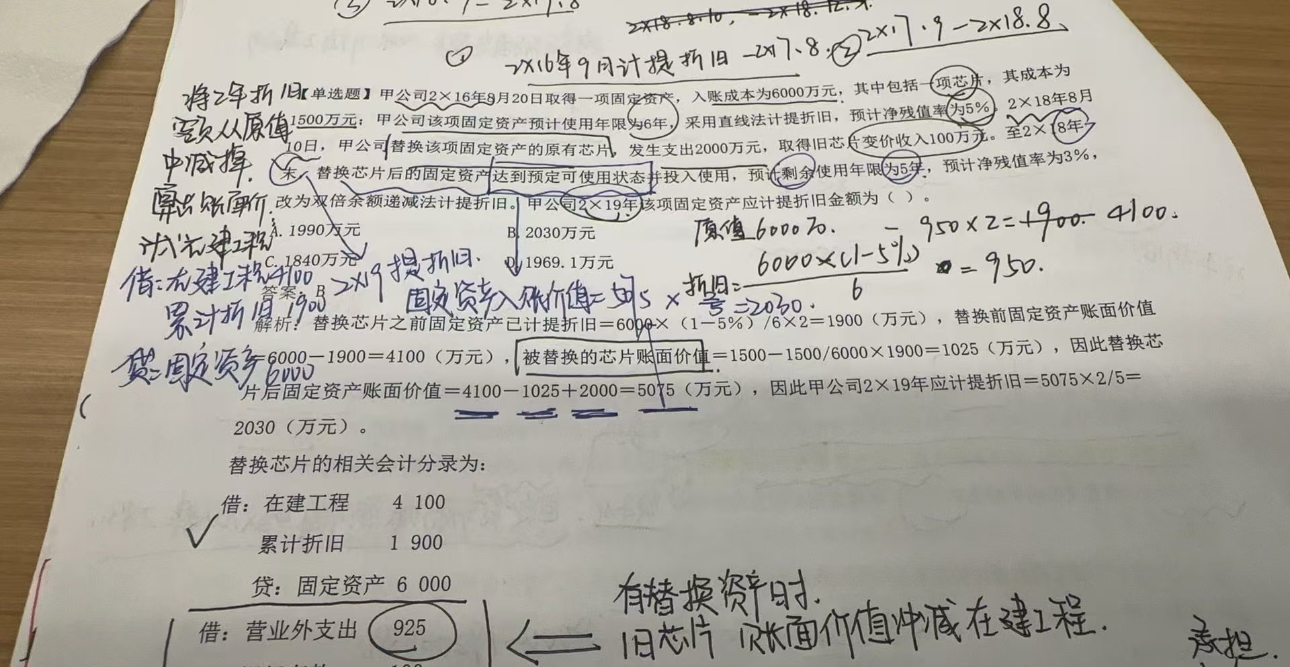 2×16年9月计提折旧-2×7.8. ② 2×17.9-2×18.8
将2年折旧
【单选题】甲公司2×16年8月20日取得一项固定资产，入账成本为6000万元，其中包括一项芯片，其成本为
1500万元；甲公司该项固定资产预计使用年限为6年，采用直线法计提折旧，预计净残值率为5%，2×18年8月
额从原值
10日，甲公司替换该项固定资产的原有芯片，发生支出2000万元，取得旧芯片变价收入100万元。至2×18年
中减掉.
末，替换芯片后的固定资产达到预定可使用状态并投入使用，预计剩余使用年限为5年，预计净残值率为3%，
算出账面价.
改为双倍余额递减法计提折旧。甲公司2×19年该项固定资产应计提折旧金额为（ ）。
计入在建工程
A. 1990万元 B. 2030万元
原值6000万. - 950×2=1900 4100.
C. 1840万元 D. 1969.1万元
折旧=6000×(1-5%)/6 =950.
借:在建工程4100 2×19提折旧.
答案：B
累计折旧1900 固定资产入账价值=5075×2/5=2030.
解析：替换芯片之前固定资产已计提折旧＝6000×（1－5%）/6×2＝1900（万元），替换前固定资产账面价值
贷:固定资产6000
＝6000－1900＝4100（万元），被替换的芯片账面价值＝1500－1500/6000×1900＝1025（万元），因此替换芯
片后固定资产账面价值＝4100－1025＋2000＝5075（万元），因此甲公司2×19年应计提折旧＝5075×2/5＝
2030（万元）。
替换芯片的相关会计分录为：
借：在建工程 4 100
累计折旧 1 900
贷：固定资产 6 000
有替换资产时.
借：营业外支出 925
旧芯片 账面价值冲减在建工程.
承担.